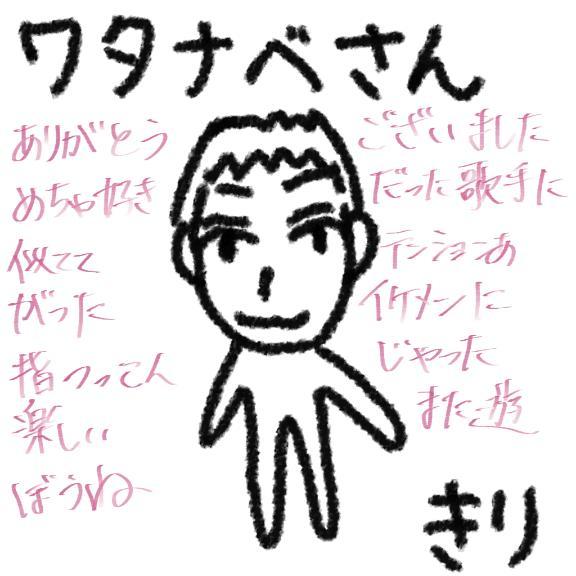 ワタナベさん
ありがとう ございました
めちゃ好き だった歌手に
似てて テンションあ
がった イケメンに
指つっこん じゃった
楽しい また遊
ぼうね
きり